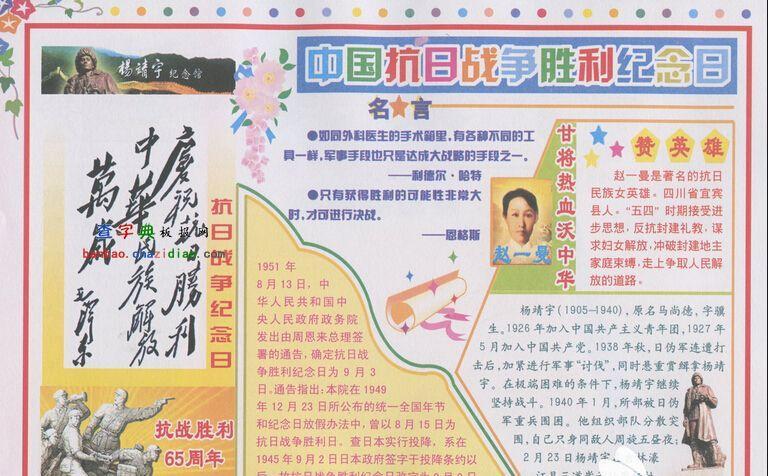 中国抗日战争胜利纪念日
杨靖宇纪念馆
名言
●如同外科医生的手术箱里,有各种不同的工
具一样,军事手段也只是达成大战略的手段之一。
——利德尔·哈特
●只有获得胜利的可能性非常大
时,才可进行决战。
——恩格斯
庆祝抗日胜利
中华民族解放
万岁
毛泽东
查字典板报网
banbao.chazidian.com
抗日战争纪念日
抗战胜利
65周年
1951 年
8 月 13 日, 中
华人民共和国中
央人民政府政务院
发出由周恩来总理签
署的通告,确定抗日战
争胜利纪念日为 9 月 3
日。通告指出:本院在 1949
年 12 月 23 日所公布的统一全国年节
和纪念日放假办法中,曾以 8 月 15 日为
抗日战争胜利日。查日本实行投降,系在
1945 年 9 月 2 日日本政府签字于投降条约以
甘将热血沃中华
赵一曼
赞英雄
赵一曼是著名的抗日
民族女英雄。四川省宜宾
县人。“五四”时期接受进
步思想,反抗封建礼教,谋
求妇女解放,冲破封建地主
家庭束缚,走上争取人民解
放的道路。
杨靖宇(1905—1940),原名马尚德,字骥
生。1926 年加入中国共产主义青年团,1927 年
5 月加入中国共产党。1938 年秋,日伪军连遭打
击后,加紧进行军事“讨伐”,同时悬重赏缉拿杨靖
宇。在极端困难的条件下,杨靖宇继续
坚持战斗。1940 年 1 月,所部被日伪
军重兵围困。他组织部队分散突
围,自己只身同敌人周旋五昼夜;
2 月 23 日杨靖宇